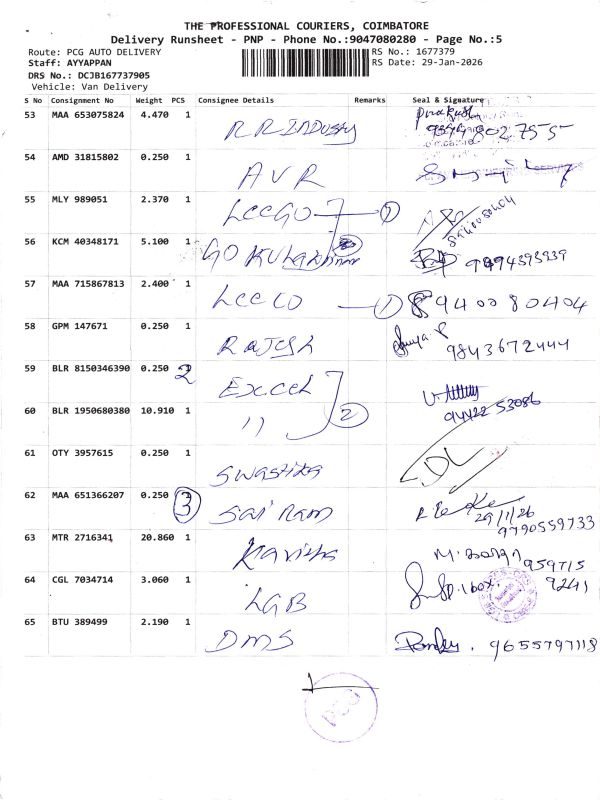 THE PROFESSIONAL COURIERS, COIMBATORE
Delivery Runsheet - PNP - Phone No.:9047080280 - Page No.:5
Route: PCG AUTO DELIVERY
RS No.: 1677379
Staff: AYYAPPAN
RS Date: 29-Jan-2026
DRS No.: DCJB167737905
Vehicle: Van Delivery
S No Consignment No Weight PCS Consignee Details Remarks Seal & Signature
53 MAA 653075824 4.470 1 RR Industry Prakash
54 AMD 31815802 0.250 1 AVR
55 MLY 989051 2.370 1 LCCGO 1 8940080404
56 KCM 40348171 5.100 1 GOKULakannan 9894393939
57 MAA 715867813 2.400 1 LCCCO 1 8940080404
58 GPM 147671 0.250 1 Rajesh 9843672444
59 BLR 8150346390 0.250 2 Excel
60 BLR 1950680380 10.910 1 11 2 94422 53086
61 OTY 3957615 0.250 1 Swastika
62 MAA 651366207 0.250 3 Sai Ram 29/1/26
9790559733
63 MTR 2716341 20.860 1 959715
64 CGL 7034714 3.060 1 LGB 1 box. 9241
65 BTU 389499 2.190 1 DMS 9655797118